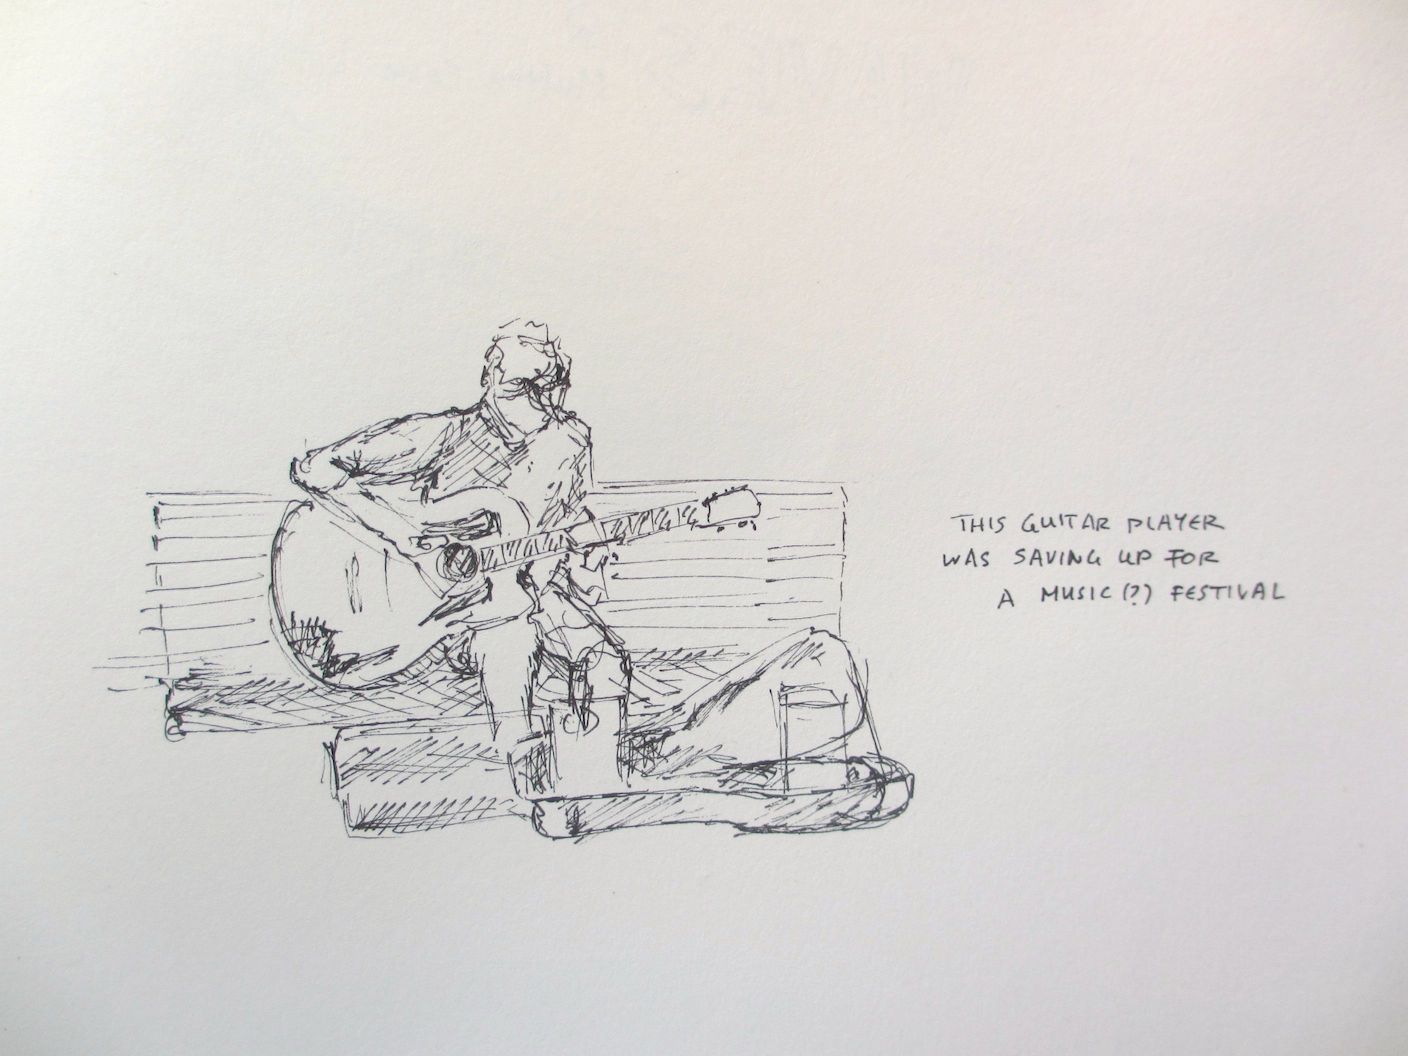 THIS GUITAR PLAYER
WAS SAVING UP FOR
A MUSIC (?) FESTIVAL